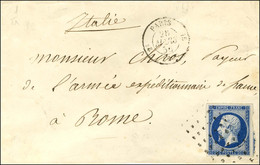 Italie
PARIS
Monsieur Payeur
de l'armée expéditionnaire de france
à Rome
EMPIRE FRANC